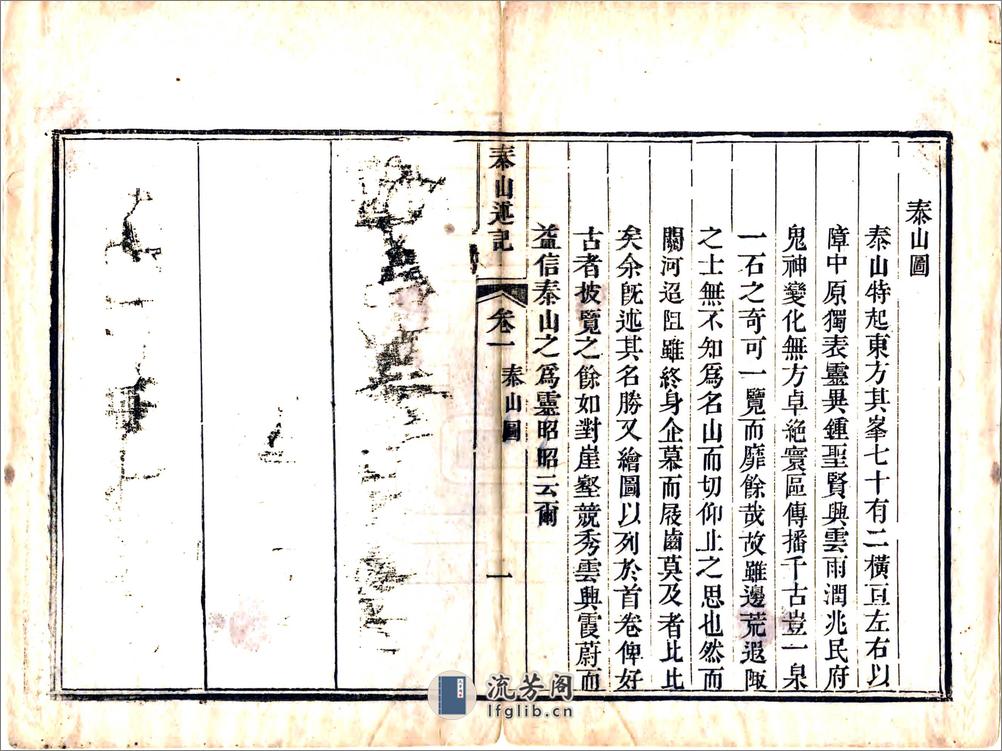 泰山圖
泰山特起東方其峯七十有二橫亘左右以
障中原獨表靈異鍾聖賢興雲雨潤兆民府
鬼神變化無方卓絶寰區傳播千古豈一泉
一石之奇可一覽而靡餘哉故雖邊荒遐陬
之士無不知爲名山而切仰止之思也然而
關河迢阻雖終身企慕而屐齒莫及者比比
矣余旣述其名勝又繪圖以列於首卷俾好
古者披覽之餘如對崖壑競秀雲興霞蔚而
益信泰山之爲靈昭昭云爾
泰山述記
卷一
泰山圖
一
流芳阁
lfglib.cn